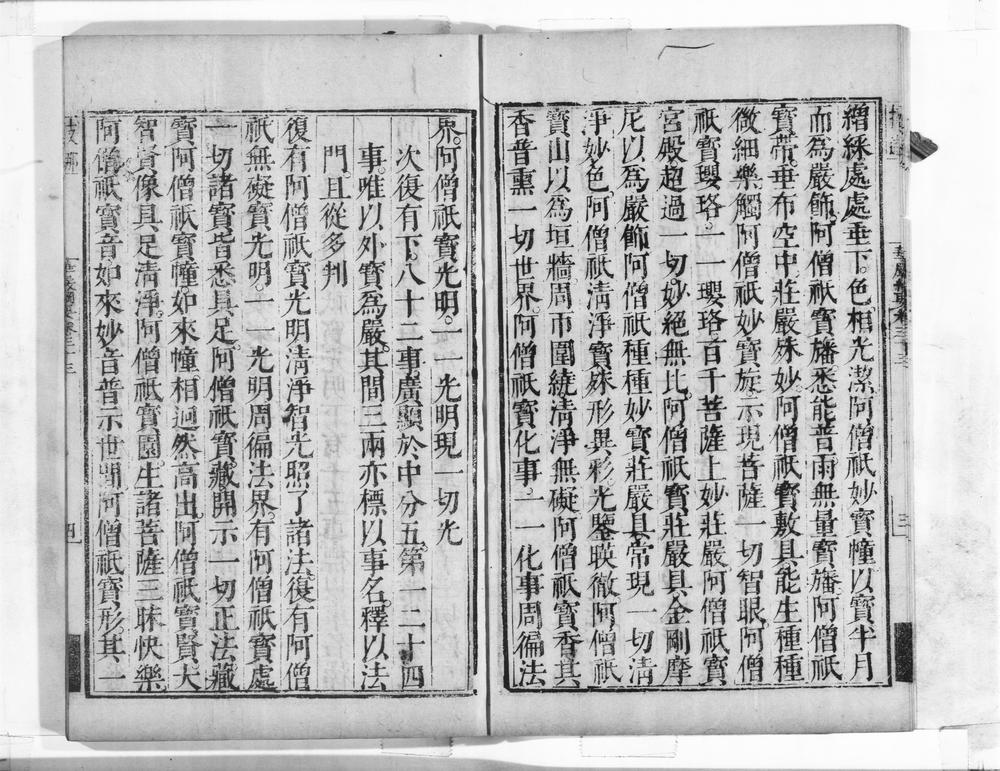 繒綵處處垂下。色相光潔阿僧祇妙寶幢以寶半月
而為嚴飾。阿僧祇寶旛悉能普雨無量寶旛。阿僧祇
寶帶垂布空中莊嚴殊妙。阿僧祇寶敷具能生種種
微細樂觸阿僧祇妙寶旋示現菩薩一切智眼。阿僧
祇寶瓔珞。一一瓔珞百千菩薩上妙莊嚴阿僧祇寶
宮殿超過一切妙絕無比。阿僧祇寶莊嚴具金剛摩
尼以為嚴飾阿僧祇種種妙寶莊嚴具常現一切清
淨妙色。阿僧祇清淨寶殊形異彩光鑒暎徹阿僧祇
寶山以為垣牆。周帀圍繞清淨無礙阿僧祇寶香其
香普熏一切世界。阿僧祇寶化事。一一化事周徧法
界。阿僧祇寶光明。一一光明現一切光
次復有下。八十二事廣顯於中分五。第一二十四
事。唯以外寶為嚴。其間三兩亦標以事名。釋以法
門。且從多判
復有阿僧祇寶光明清淨智光照了諸法。復有阿僧
祇無礙寶光明。一一光明周徧法界。有阿僧祇寶處
一切諸寶皆悉具足。阿僧祇寶藏開示一切正法藏
寶阿僧祇寶幢。如來幢相迥然高出。阿僧祇寶賢大
智賢像具足清淨。阿僧祇寶園。生諸菩薩三昧快樂
阿僧祇寶音如來妙音普示世間阿僧祇寶形其一
三
四